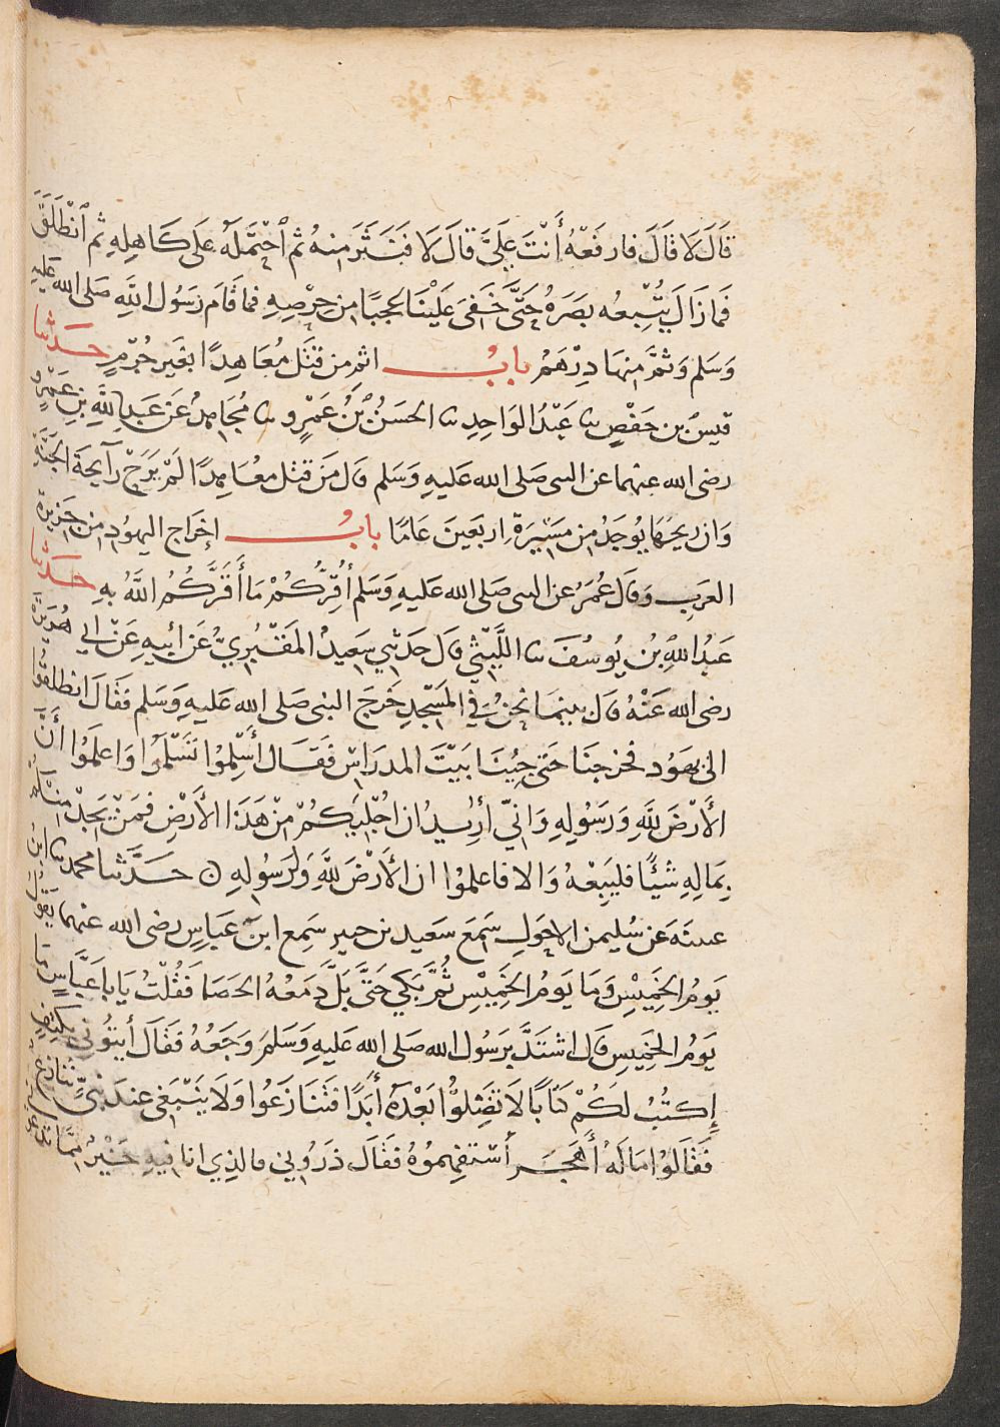 قَالَ لَا قَالَ فارفَعْهُ أَنْتَ عَلَيَّ قالَ لَا فَنَثَرَ منهُ ثم ٱحْتَمَلَهُ عَلَى كَاهِلِهِ ثم ٱنْطَلَقَ
فَمَا زَالَ يُتْبِعُه بَصَرَهُ حَتَّى خَفِيَ عَلَيْنَا عَجَبًا مِن حِرْصِهِ فما قَامَ رَسُول اللهِ صَلى الله عَلَيهِ
وَسَلم وَثَمَّ منهَا دِرْهَمٌ بابُ اثمِ من قَتَل مُعَاهِدًا بغَير جُرْمٍ حدثنا
قيسُ بن حَفْصٍ نا عَبْدُ الوَاحِدِ نا الحسَنُ بْنُ عَمْرٍو نا مُجَاهِدٌ عَن عَبدِ اللهِ بنِ عَمْرٍو
رضى الله عنهما عن النبى صَلى الله عَليهِ وَسَلم قال مَن قتَل معُاهِدًا لَمْ يَرَحْ رَآيحةَ الجَنَّةِ
وَان ريحَهَا يُوجَدُ من مَسِيرَةِ اربَعِينَ عَامًا بابُ إخرَاج اليهُودِ من جَزيرَة
العَرَبِ وَقَال عُمَرُ عن النبى صَلى الله عَليهِ وَسَلم أُقِرُّكُمْ مَا أَقَرَّكُمُ اللَّهُ بهِ حدثنا
عَبْدُ اللهِ بْن يُوسُفَ نا اللَّيْثُ قال حَدثَنِي سَعِيدٌ المَقْبُرِيُّ عَن أبيهِ عَنْ ابي هُرَيرَةَ
رضى الله عَنْهُ قال بينمَا نحنُ فِي المَسْجدِ خَرَجَ النبى صَلى الله عَليهِ وَسَلم فقَالَ انطلقُوا
الى يهَوُد فخرجنَا حَتى جِينَا بَيْتَ المدرَاسِ فَقَال أَسْلِمُوا تَسْلَمُوا وَاعلَمُوا أَنَّ
الأَرْضَ لِلَّهِ وَرَسُولِهِ وَانِّي أُرِيدُ ان اُجْلِيَكُمْ مِنْ هَذَا الأَرْضِ فمَنْ يَجدْ مِنكُم
بِمَالِهِ شَيْئًا فليَبِعْهُ وَالا فاعلمُوا ان الأَرْضَ لِلَّهِ وَلِرَسُولِهِ حدَّثنا محمد نا ابن
عيينَه عَن سُليمن الاحوَلِ سَمعَ سَعيد بن جبير سَمِع ابنَ عَباسٍ رضى الله عنهما يَقوُلُ
يَومُ الخَمِيسِ وَمَا يَومُ الخَمِيسِ ثُمَّ بَكى حَتَّى بَلَّ دَمعُهُ الحصَا فَقُلْتُ يَا بَا عَبَّاسٍ مَا
يَومُ الخَمِيسِ قال اشتَدَّ برَسُول الله صَلى الله عَليهِ وَسَلمَ وَجَعُهُ فقَالَ أيتوُنى بكتفٍ
إِكتُبُ لَكُمْ كتَابًا لَا تَضِلوُّا بَعْدَهُ أَبَدًا فتَنَازَعُوا وَلَا يَنْبَغى عندَ نبيٍّ تنازعٌ
فَقَالوُا مَا لَهُ أَهَجَر أسْتفهِموُهُ فقَالَ ذَرُونِي فالذِي انا فيهِ خَيْرٌ ممَّا تدعوني